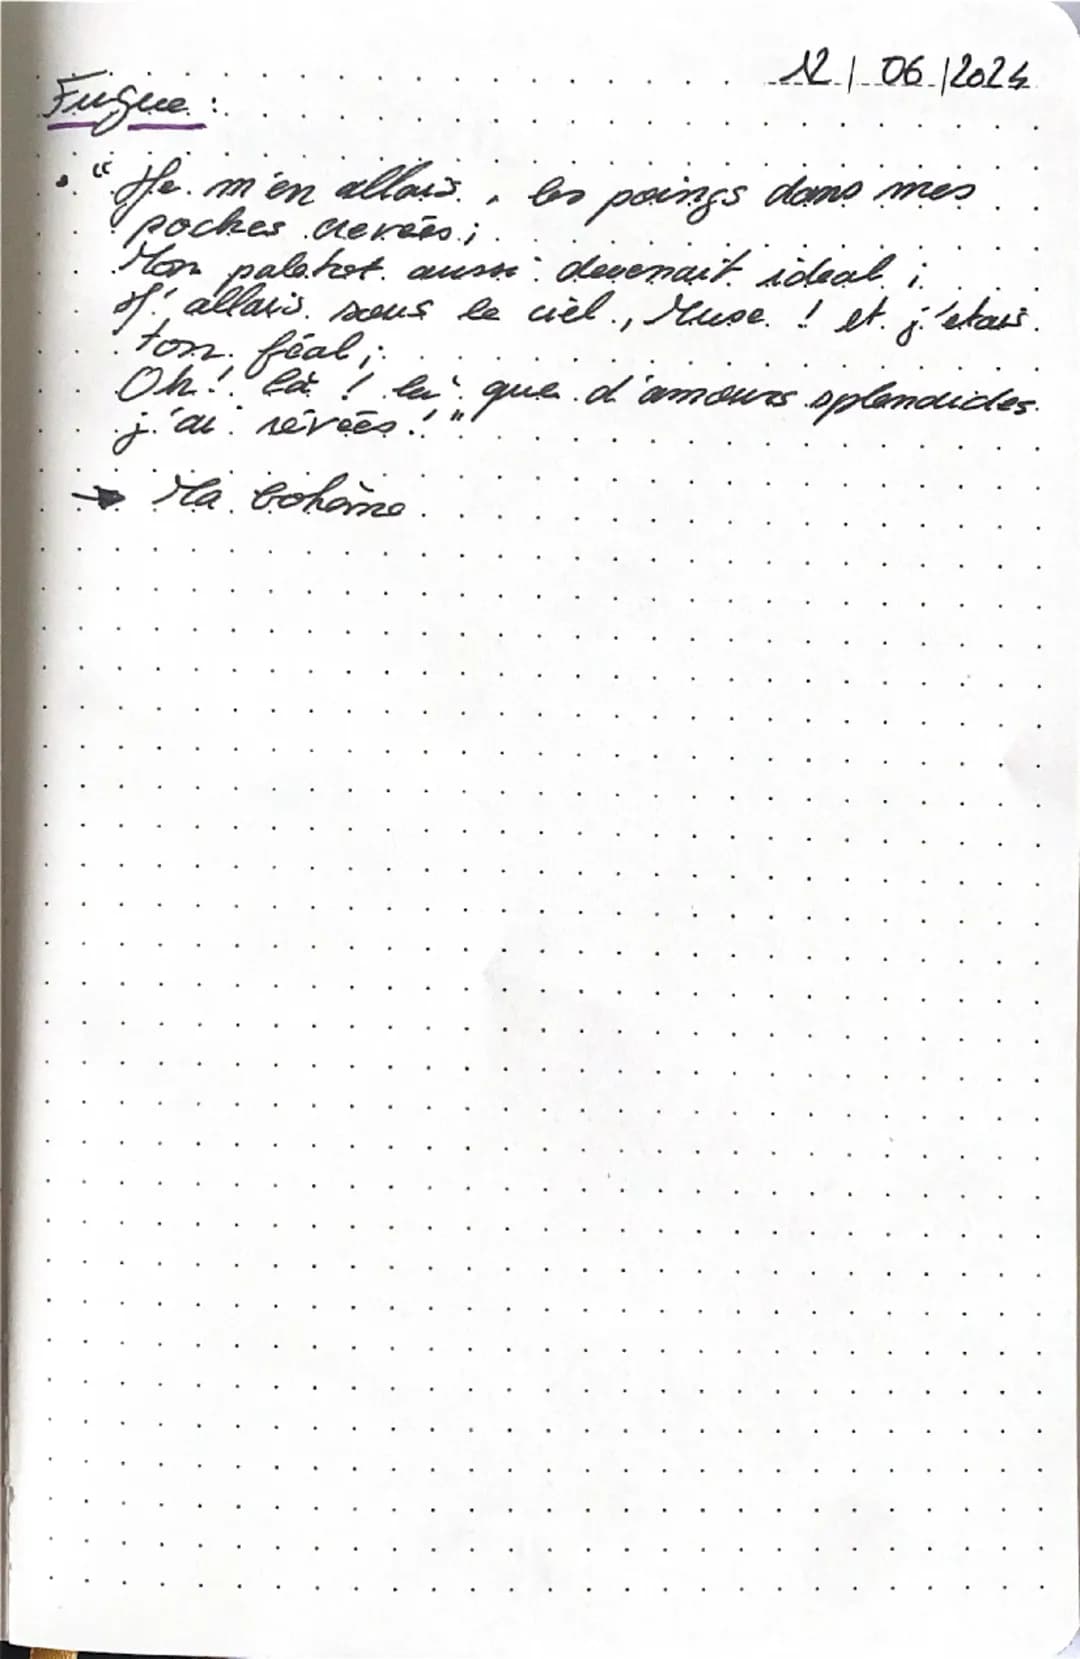 12/06/2024
Fugue :
• "Je m'en allais, les poings dans mes
poches crevées ;
Mon paletot aussi devenait idéal ;
J'allais sous le ciel, Muse ! et j'étais
ton féal ;
Oh ! là ! là ! que d'amours splendides
j'ai rêvées !"
→ Ma bohème